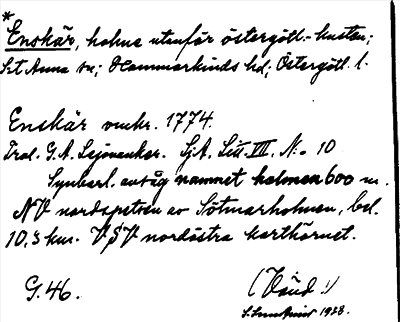 *
Enskär, holme utanför östergötl.-kusten;
S:t Anna sn; Hammarkinds hd; Östergötl. l.
Enskär omkr. 1774.
Trol. G.A. Leijonanker. SjA. Litt. VII. N:o 10
Synbarl. avsåg namnet holmen 600 m.
NV nordspetsen av Sötmarholmen, bel.
10,3 km. VSV nordöstra karthörnet.
G.46.
(Vänd!)
1928.